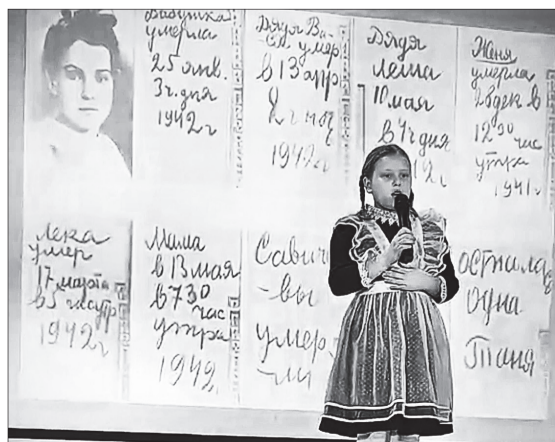 Бабушка
умерла
25 янв.
3 ч. дня
1942 г
Дядя Ва-
ся умер
в 13 апр
2 ч ноч
1942 г
Дядя
Леша
10 мая
в 4 ч дня
Женя
умерла
28 дек в
12 30 час
утра
1941 г
Лека
умер
17 марта
в 5 час утр
1942 г
Мама
в 13 мая
в 7 30
час
утра
1942
Савиче
-вы
умер
-ли
осталась
одна
Таня